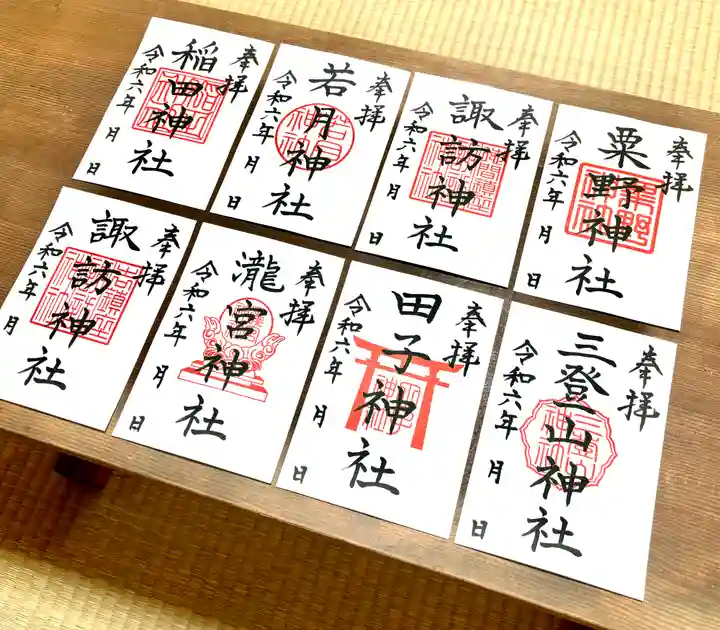 奉拝
稲田神社
令和六年 月 日
奉拝
若月神社
令和六年 月 日
奉拝
諏訪神社
令和六年 月 日
奉拝
粟野神社
令和六年 月 日
奉拝
諏訪神社
令和六年 月
奉拝
瀧宮神社
令和六年 月 日
奉拝
田子神社
令和六年 月 日
奉拝
三登山神社
令和六年 月 日